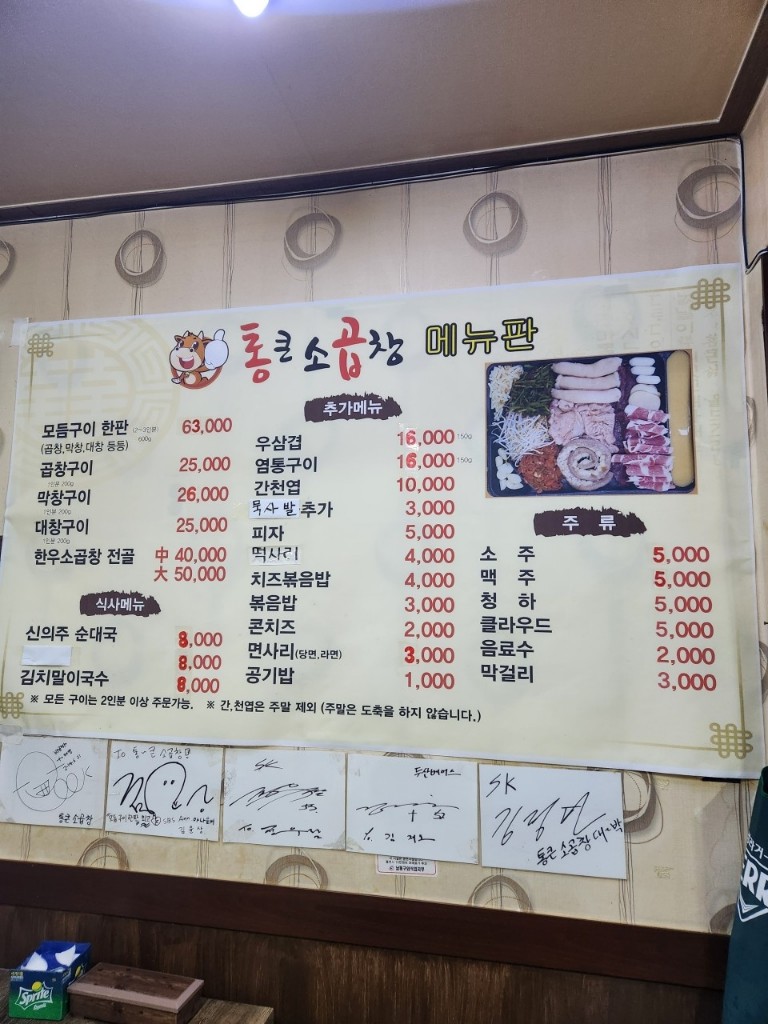 통큰소곱창 메뉴판
모듬구이 한판 (2~3인분) 63,000
(곱창,막창,대창 등등) 600g
곱창구이 25,000
1인분 200g
막창구이 26,000
1인분 200g
대창구이 25,000
1인분 200g
한우소곱창 전골 中 40,000
大 50,000
식사메뉴
신의주 순대국 8,000
8,000
김치말이국수 8,000
추가메뉴
우삼겹 16,000 150g
염통구이 16,000 150g
간천엽 10,000
묵사발 추가 3,000
피자 5,000
떡사리 4,000
치즈볶음밥 4,000
볶음밥 3,000
콘치즈 2,000
면사리(당면,라면) 3,000
공기밥 1,000
주 류
소 주 5,000
맥 주 5,000
청 하 5,000
클라우드 5,000
음료수 2,000
막걸리 3,000
※ 모든 구이는 2인분 이상 주문가능. ※ 간,천엽은 주말 제외 (주말은 도축을 하지 않습니다.)
통큰 소곱창
SK
두산베어스
SK
통큰 소곱창 대~박
Sprite